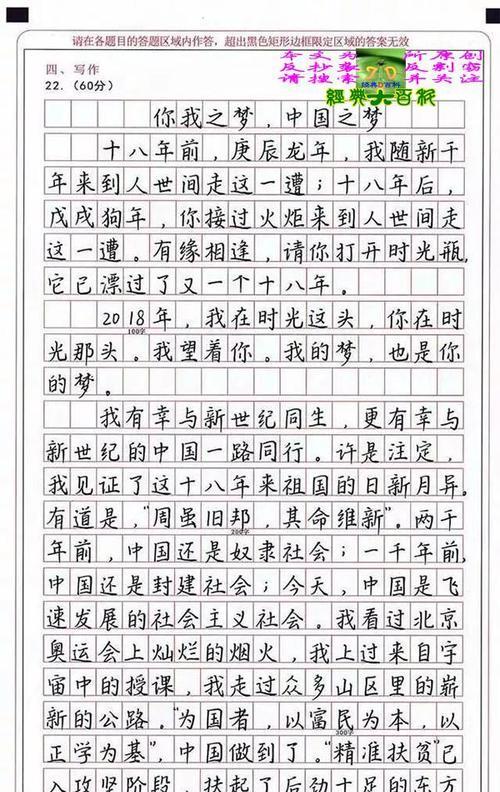 请在各题目的答题区域内作答，超出黑色矩形边框限定区域的答案无效
本文为 所原创
反抄袭 反剽窃
请搜索 并关注
7D
经典D百科
經典大百科
四、写作
22.（60分）
你我之梦，中国之梦
十八年前，庚辰龙年，我随新千
年来到人世间走这一遭；十八年后，
戊戌狗年，你接过火炬来到人世间走
这一遭。有缘相逢，请你打开时光瓶，
它已漂过了又一个十八年。
2018年，我在时光这头，你在时
100字
光那头。我望着你。我的梦，也是你
的梦。
我有幸与新世纪同生，更有幸与
新世纪的中国一路同行。许是注定，
我见证了这十八年来祖国的日新月异。
有道是，“周虽旧邦，其命维新”。两千
200字
年前，中国还是奴隶社会；一千年前，
中国还是封建社会；今天，中国是飞
速发展的社会主义社会。我看过北京
奥运会上灿烂的烟火，我上过来自宇
宙中的授课，我走过众多山区里的崭
新的公路。“为国者，以富民为本，以
300字
正学为基”，中国做到了。“精准扶贫”已
入攻坚阶段，扶起了后劲十足的东方